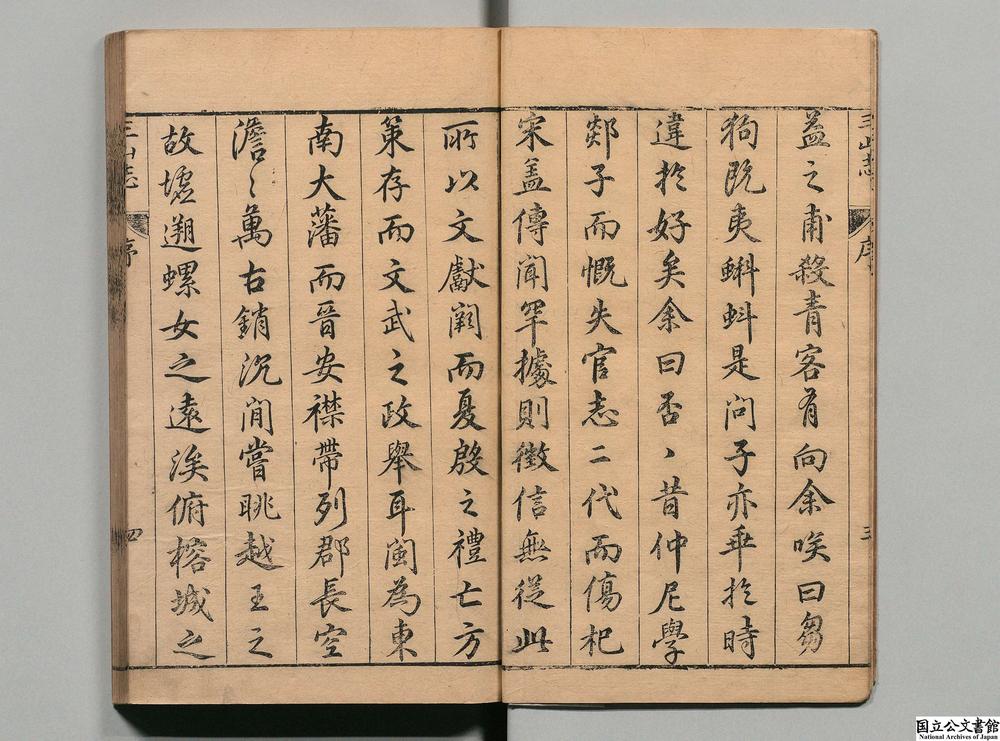 三山志 序 三
益之甫殺青客有向余唉曰芻
狗既夷蝌蚪是问子亦乖於時
違於好矣余曰否〻昔仲尼學
郯子而慨失官志二代而傷杞
宋盖傳闻罕據則徵信無從此
所以文獻阙而夏殷之禮亡方
策存而文武之政舉耳闽為東
南大藩而晉安襟帶列郡長空
澹〻萬古銷沉间嘗眺越王之
故墟遡螺女之遠涘俯榕城之
三山志 序 四
国立公文書館
National Archives of Japan